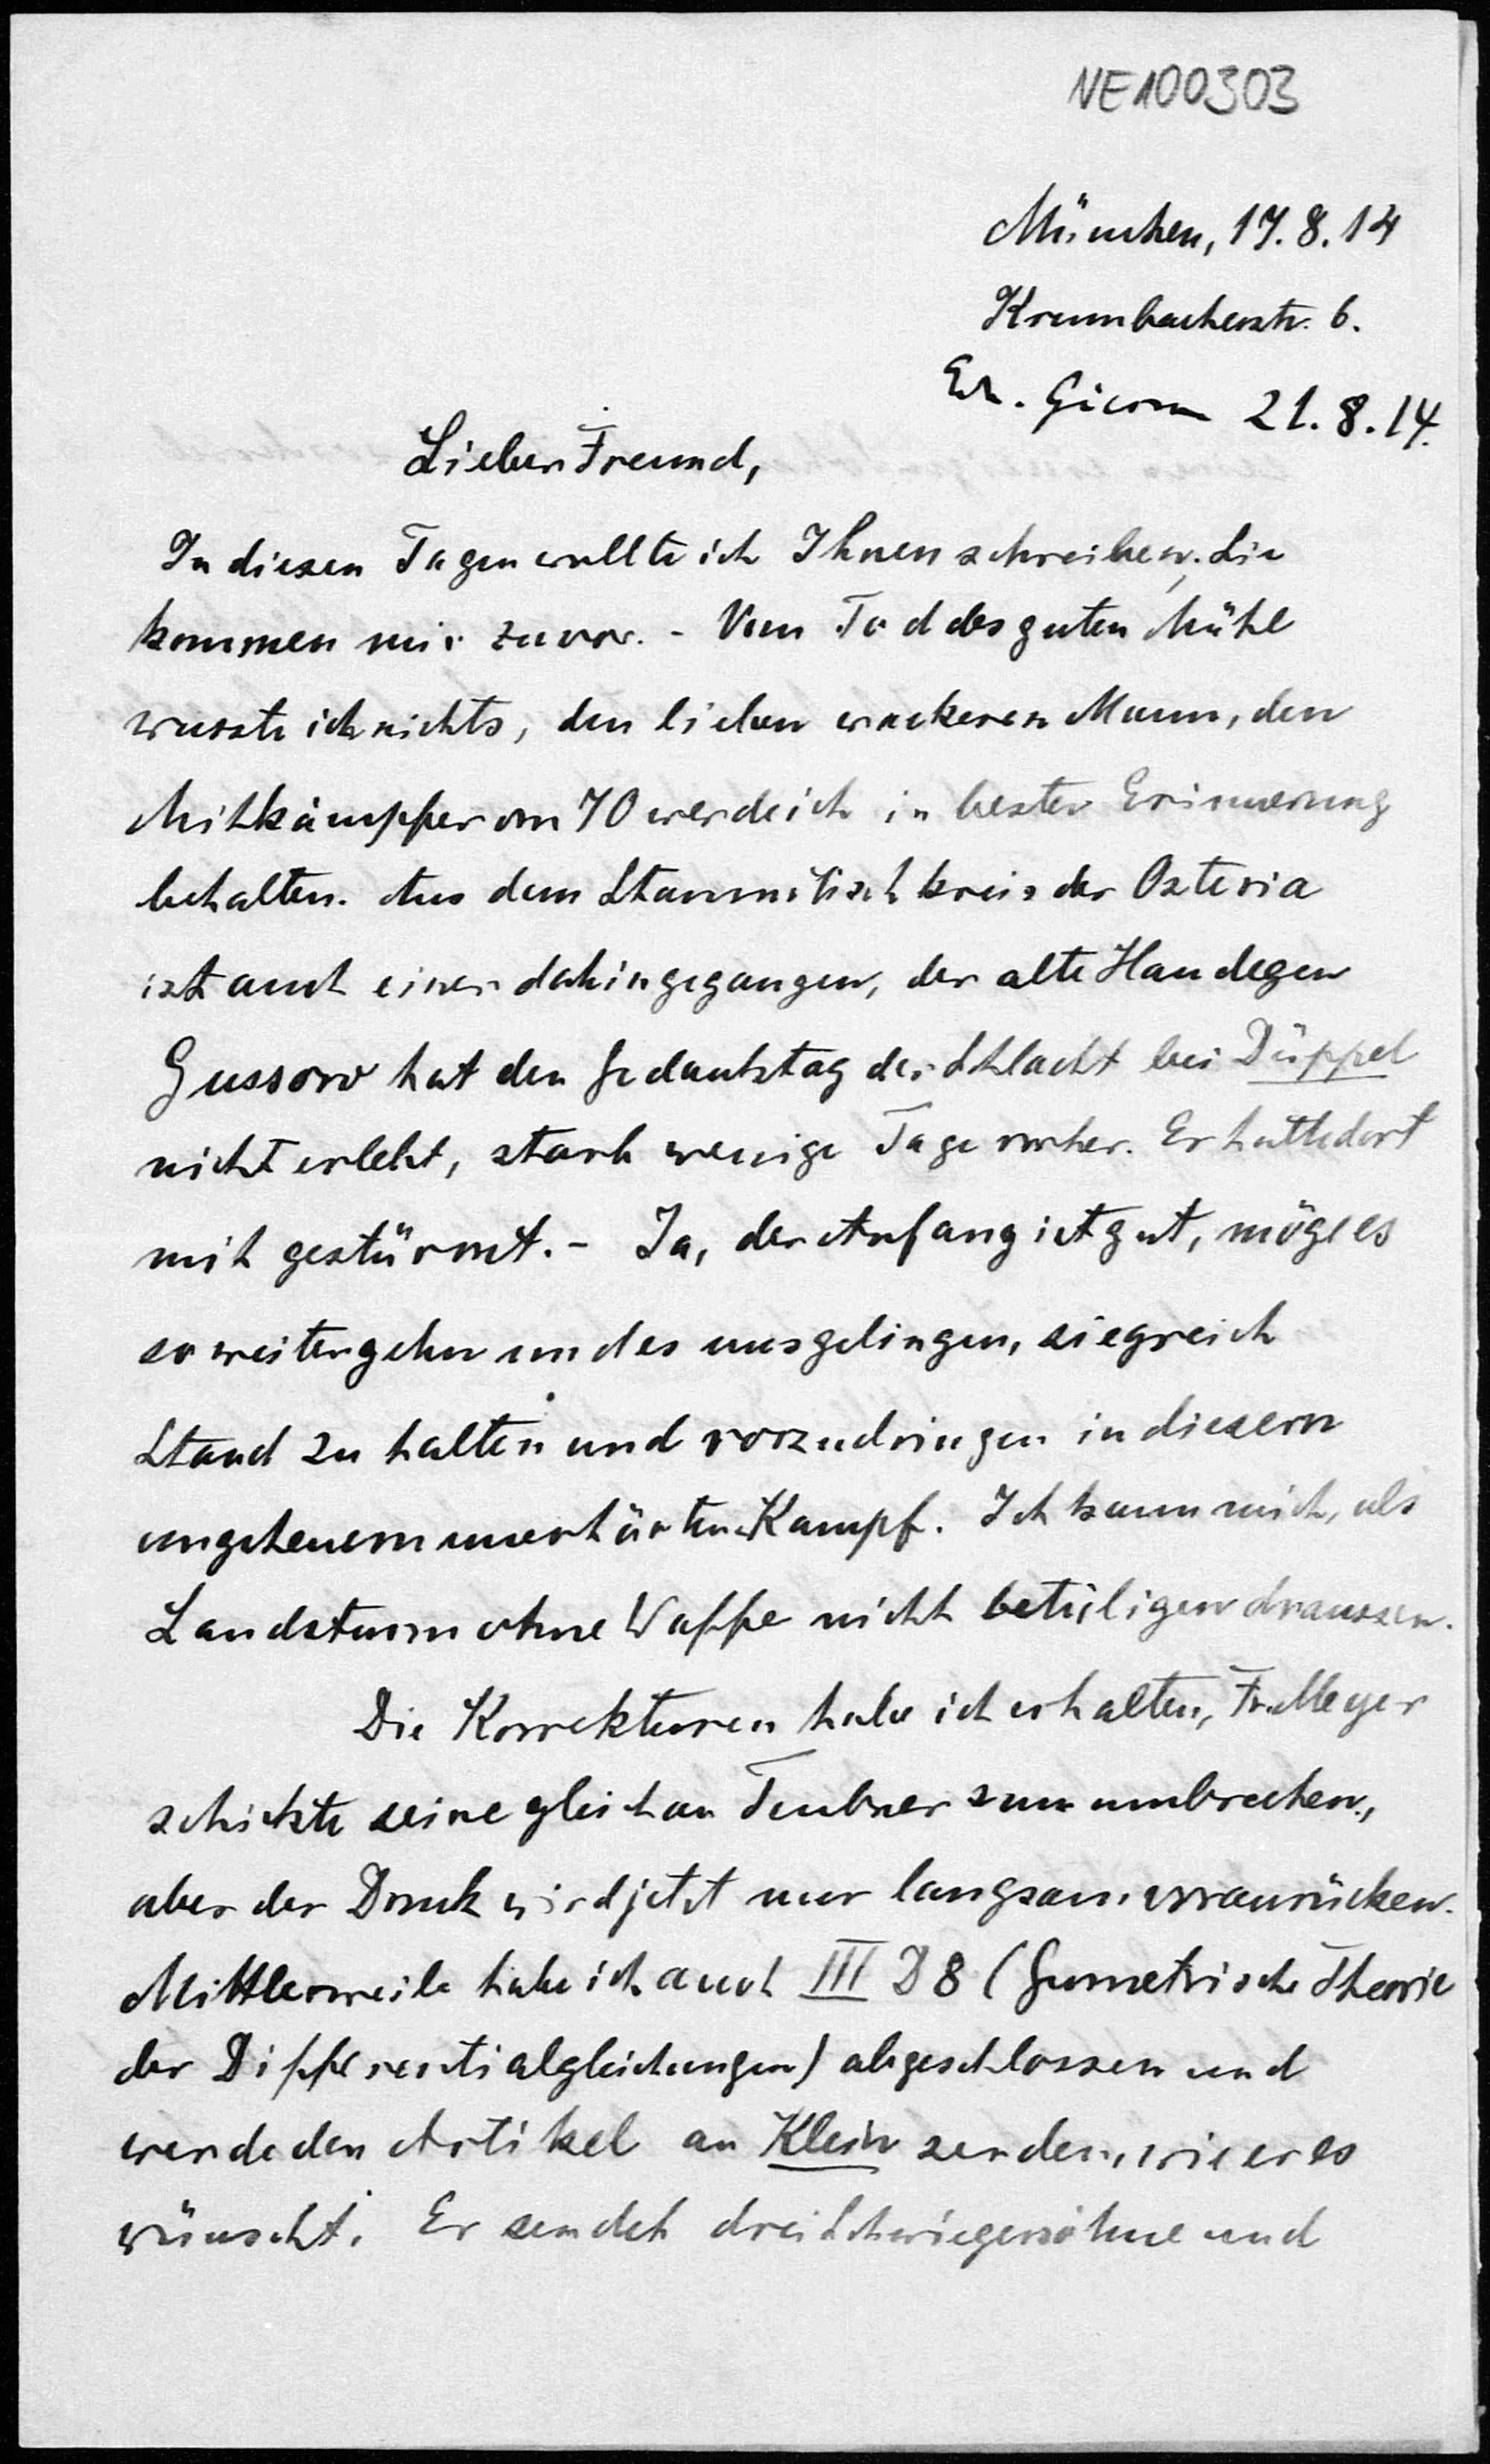 NE100303
München, 17.8.14
Krumbacherstr. 6.
21.8.14.
Lieber Freund,
In diesen Tagen wollte ich Ihnen schreiben, Sie
kommen mir zuvor. - Vom Tod des guten Mühl
wusste ich nichts, den lieben wackeren Mann, den
Mitkämpfer von 70 werde ich in bester Erinnerung
behalten. Aus dem Stammtischkreis der Osteria
ist auch einer dahingegangen, der alte Haudegen
Gussow hat den Gedenktag der Schlacht bei Düppel
nicht erlebt, starb wenige Tage vorher. Er hatte dort
mit gestürmt. - Ja, der Anfang ist gut, möge es
so weitergehn und es uns gelingen, siegreich
Stand zu halten und vorzudringen in diesem
ungeheuern unerhörten Kampf. Ich kann mich, als
Landsturm ohne Waffe nicht beteiligen draussen.
Die Korrekturen habe ich erhalten, Fr. Meyer
schickte seine gleich an Teubner zum umbrechen,
aber der Druck wird jetzt nur langsam voranrücken.
Mittlerweile habe ich auch III D 8 (Geometrische Theorie
der Differentialgleichungen) abgeschlossen und
werde den Artikel an Klein senden, wie er es
wünscht. Er sendet drei Schwiegersöhne und